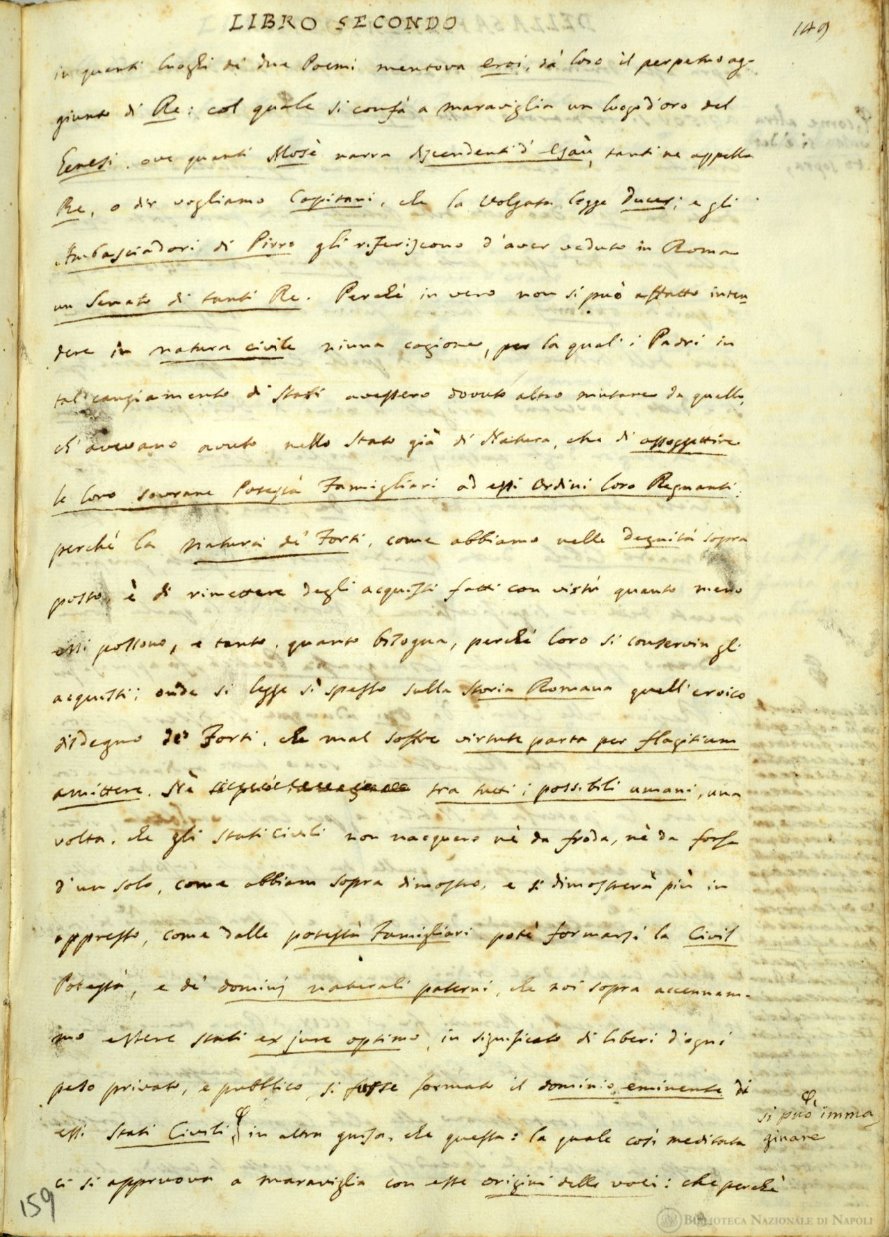 LIBRO SECONDO
149
in quanti luoghi di due Poemi mentova eroi, dà loro il perpetuo ag-
giunto di Re: col quale si confà a maraviglia un luogo d'oro del
Genesi, ove quanti Mosè narra discendenti d'Esaù, tanti ne appella
Re, o dir vogliamo Capitani, che la Volgata legge Duces; e gli
Ambasciadori di Pirro gli riferiscono d'aver veduto in Roma
un Senato di tanti Re. Perchè in vero non si può affatto inten-
dere in natura civile niuna cagione, per la qual' i Padri in
tal cangiamento di Stati avessero dovuto altro mutare da quello,
ch'avevano avuto nello Stato già di Natura, che di assoggettire
le loro sovrane Potestà Famigliari ad essi Ordini loro Regnanti:
perchè la natura de' Forti, come abbiamo nelle Degnità sopra
posto, è di rimettere degli acquisti fatti con virtù quanto meno
essi possono, e tanto, quanto bisogna, perchè loro si conservin gli
acquisti; onde si legge sì spesso sulla Storia Romana quell'eroico
disdegno de' Forti, che mal soffre virtute parta per flagitium
amittere. Nè tra tutti i possibili umani, una
volta, che gli Stati Civili non nacquero nè da froda, nè da forza
d'un solo, come abbiam sopra dimostro, e si dimosterà più in
appresso, come dalle potestà Famigliari potè formarsi la Civil
Potestà, e de' dominj naturali paterni, che noi sopra accennam-
mo essere stati ex jure optimo, in significato di liberi d'ogni
peso privato, e pubblico, si fusse formato il dominio eminente di
essi Stati Civili, in altra guisa, che questa: la quale così meditata
si può imma
ginare
ci si appruova a maraviglia con esse origini delle voci: che perchè
159
BIBLIOTECA NAZIONALE DI NAPOLI